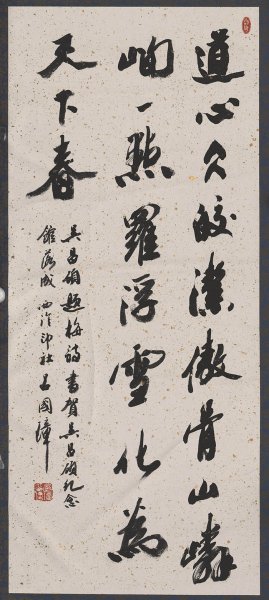 道心久皎潔傲骨山嶙
峋一點羅浮雪化為
天下春
吳昌碩題梅詩書賀吳昌碩紀念
館落成西泠印社呂國璋